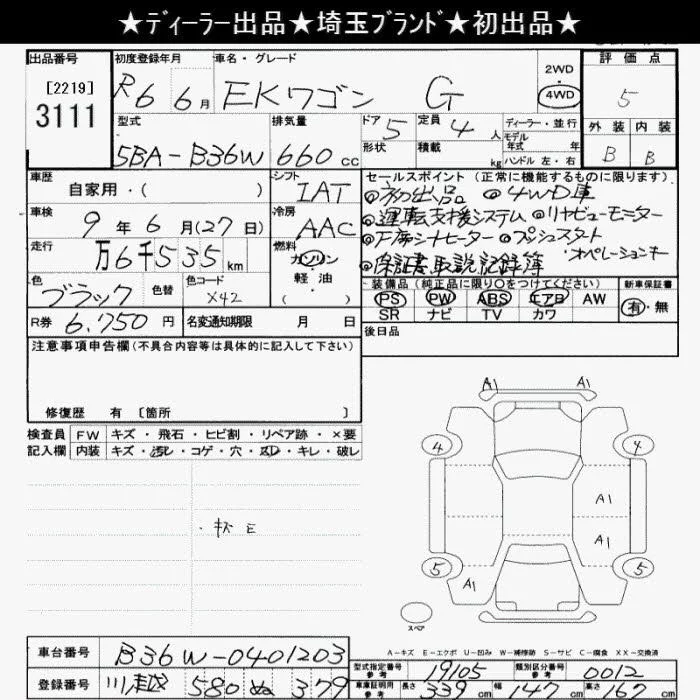 ★ディーラー出品★埼玉ブランド★初出品★
出品番号 初度登録年月 車名・グレード 2WD・4WD 評価点
[2219]
3111 R6年6月 EKワゴン G 5
型式 排気量 ドア 5 定員 4人 ディーラー・並行 外装 内装
5BA-B36W 660cc 形状 積載 kg モデル年式 年 ハンドル 左・右 B B
車歴 自家用・( ) シフト IAT セールスポイント(正常に機能するものに限ります)
◎初出品 ◎4WD車
車検 9年6月(27日) 冷房 AAC ◎運転支援システム ◎リヤビューモニター
走行 万6千535km 燃料 ガソリン 軽油 ( ) ◎D席シートヒーター ◎プッシュスタート
・オペレーションキー
◎保証書取説記録簿
色 ブラック 色替 色コード X42 装備品(純正品に限り○をつけてください) 新車保証書
PS PW ABS エアB AW 有・無
R券 6,750円 名変通知期限 月 日 SR ナビ TV カワ
注意事項申告欄(不具合内容等は具体的に記入して下さい) 後日品
修復歴 有 〔箇所 〕
検査員 FW キズ・飛石・ヒビ割・リペア跡・×要
記入欄 内装 キズ・汚レ・コゲ・穴・スレ・キレ・破レ
A1 A1
4 4
・キズ E A1
A1
5 5
A1
スペア
A-キズ E-エクボ U-凹み W-補修跡 S-サビ C-腐食 XX-交換済
車台番号 B36W-0401203 型式指定番号 参考 19105 類別区分番号 参考 0012
登録番号 川越 580 ぬ 379 車庫証明用 参考 長さ 339cm 幅 147cm